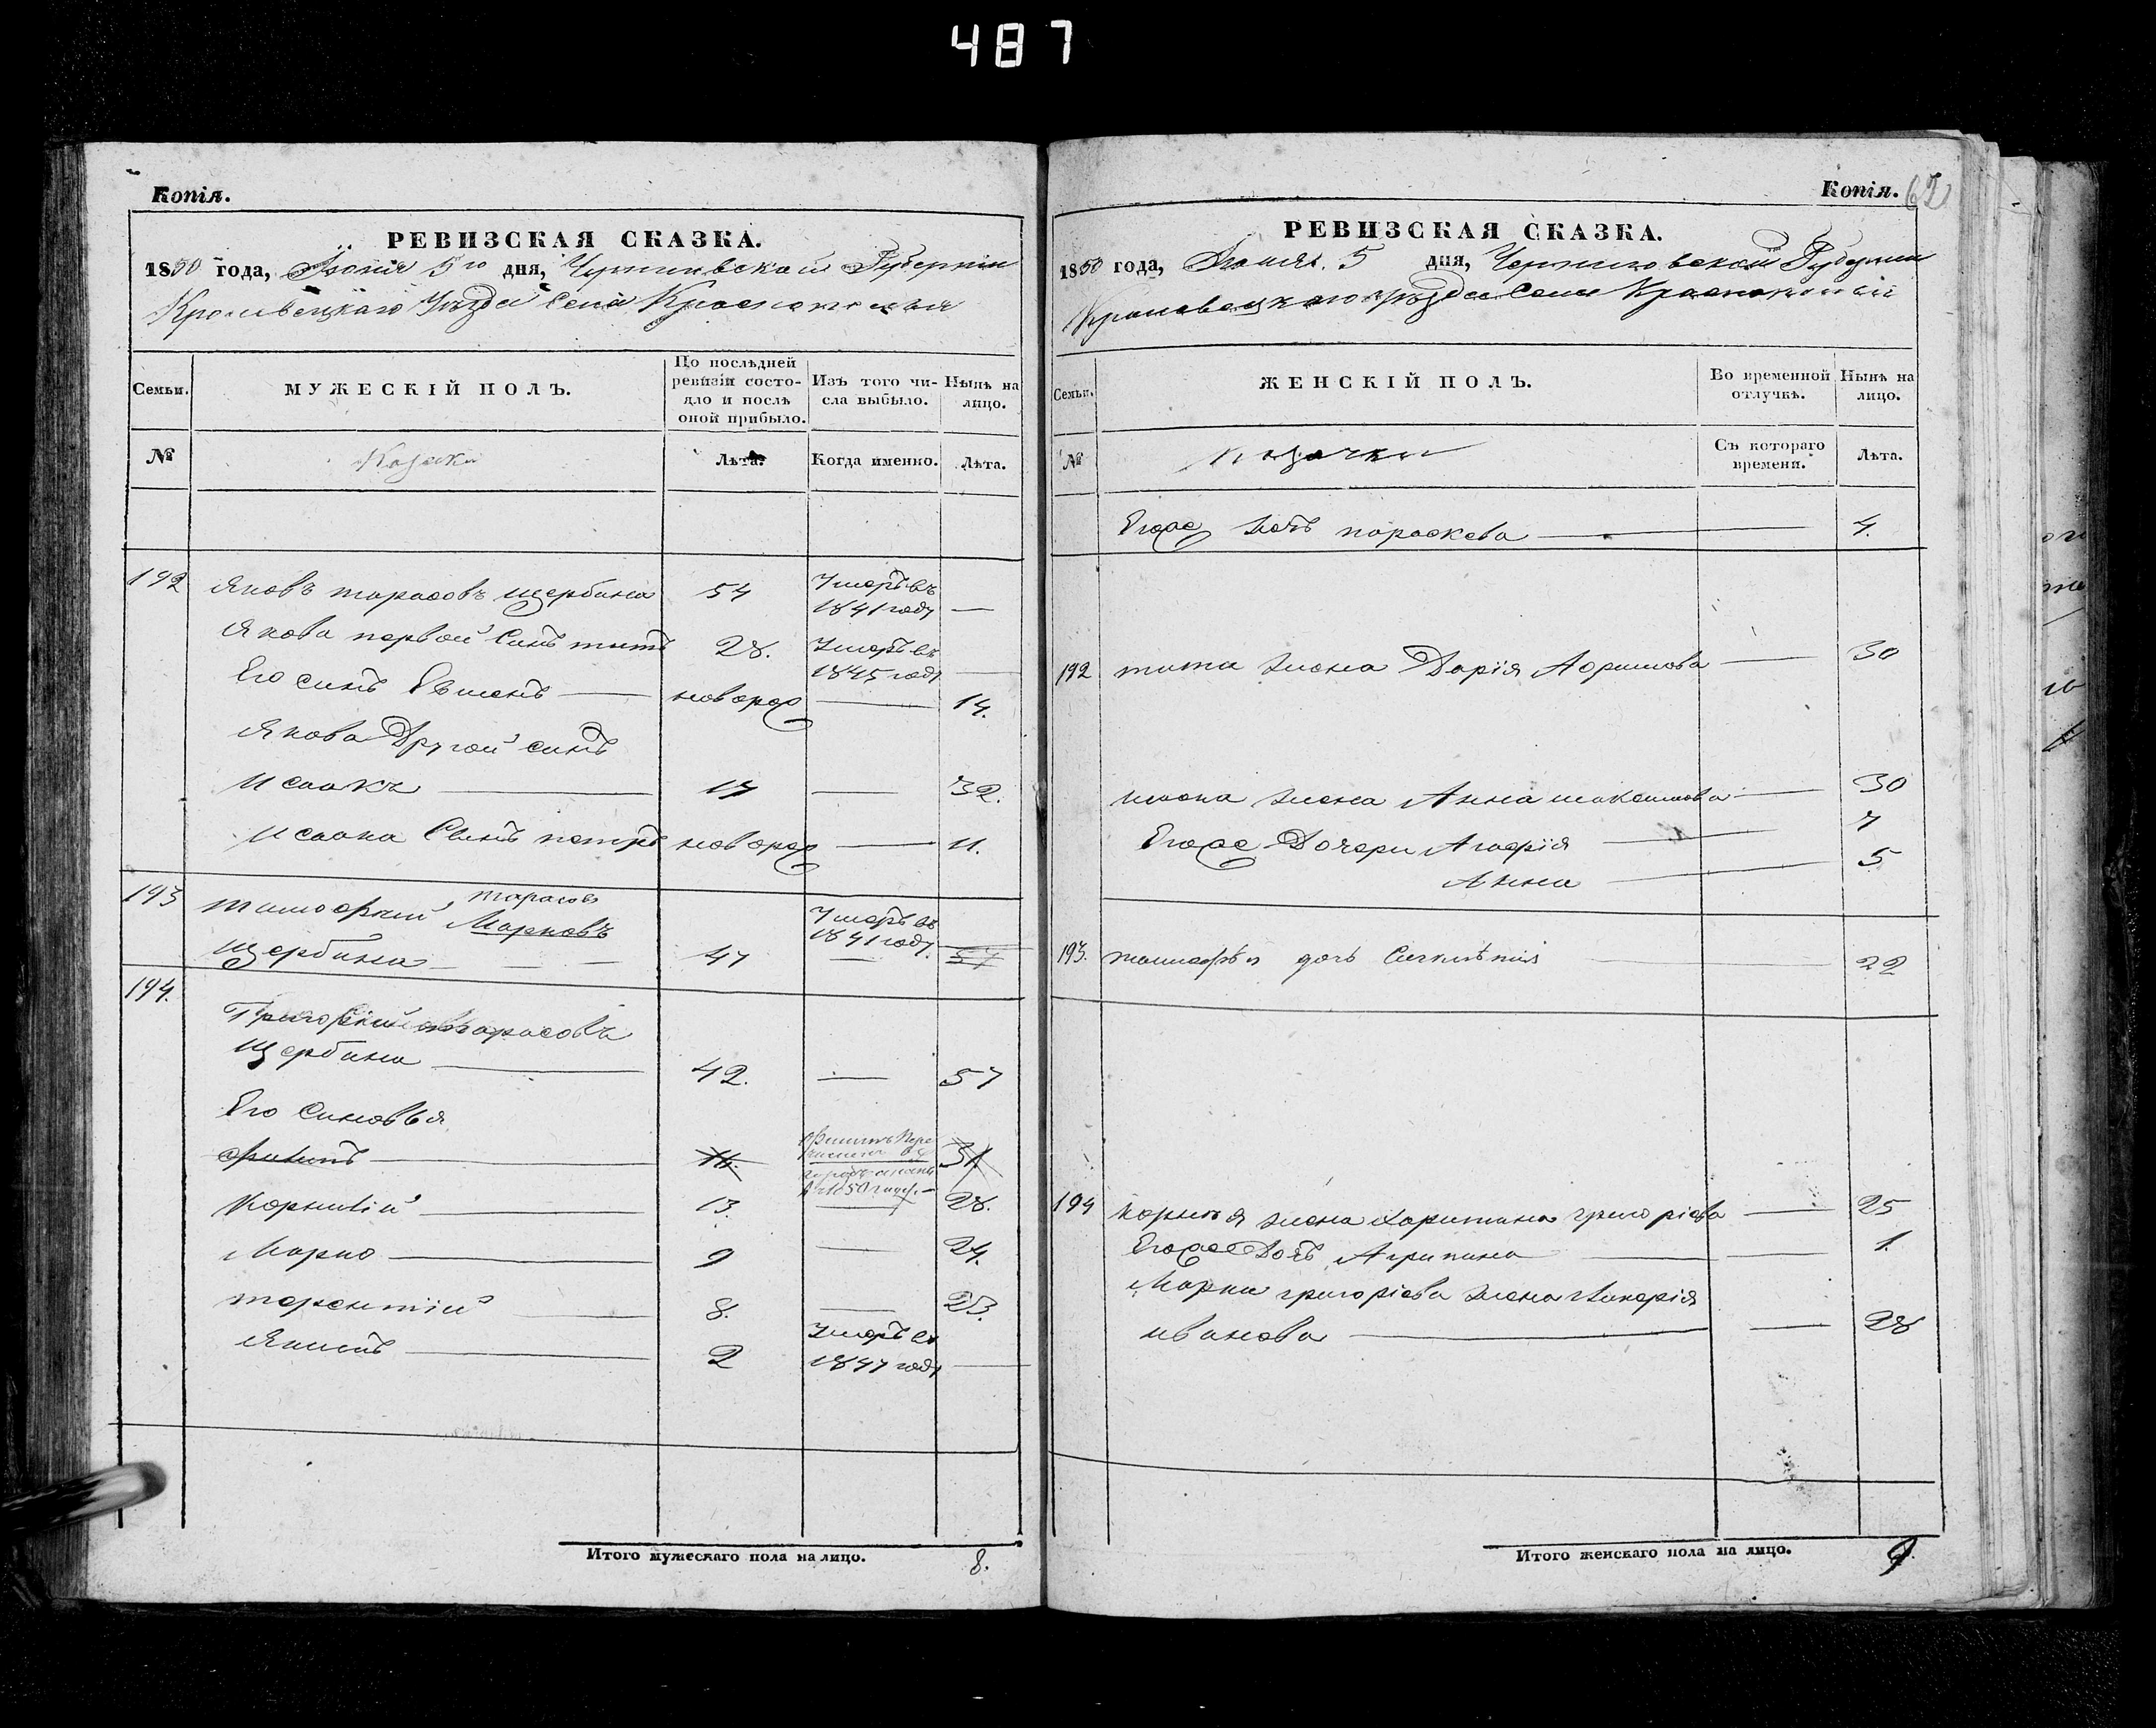 487
Копія.
РЕВИЗСКАЯ СКАЗКА.
1850 года, Іюня 5го дня, Черниговской Губерніи
Кролевецкаго Уѣзда Села
Семьи.
МУЖЕСКІЙ ПОЛЪ.
По послѣдней ревизіи состояло и послѣ оной прибыло.
Изъ того числа выбыло.
Нынѣ на лицо.
№
Козаки
Лѣта.
Когда именно.
Лѣта.
192 Яковъ тарасовъ щербина 54 Умеръ въ 1841 году —
Якова первой Синъ титъ 28. Умеръ въ 1845 году —
Его синъ Евменъ — новорож — 14.
Якова Другой синъ
Исаакъ — 17 — 32.
Исаака Синъ петръ новорож — 11.
193 тимофей тарасов Марковъ
Щербина — 47 Умеръ въ 1841 году. 57
194. Григорій тарасовъ
Щербина — 42. — 57
Его Синовья
Филипъ — 16. Филипъ 31
Корнилій — 13. — 28.
Марко — 9 — 24.
терентій — 8. — 23.
Якимъ — 2 Умеръ въ 1847 году —
Итого мужескаго пола на лицо. 8.
Копія. 62
РЕВИЗСКАЯ СКАЗКА.
1850 года, Іюня 5 дня, Черниговской Губерніи
Кролевецкаго уѣзда Села
Семьи.
ЖЕНСКІЙ ПОЛЪ.
Во временной отлучкѣ.
Нынѣ на лицо.
№
козачки
Съ котораго времени.
Лѣта.
Егоже дочъ параскева — 4.
192 тита жена Дарія — 30
жена Анна максимова — 30
Егоже Дочери — 7
Анна — 5
193. дочь — 22
194 корнилія жена харитина григоріева — 25
Егоже Дочъ Агрипина — 1.
Марка григоріева жена
иванова — 28
Итого женскаго пола на лицо. 9.